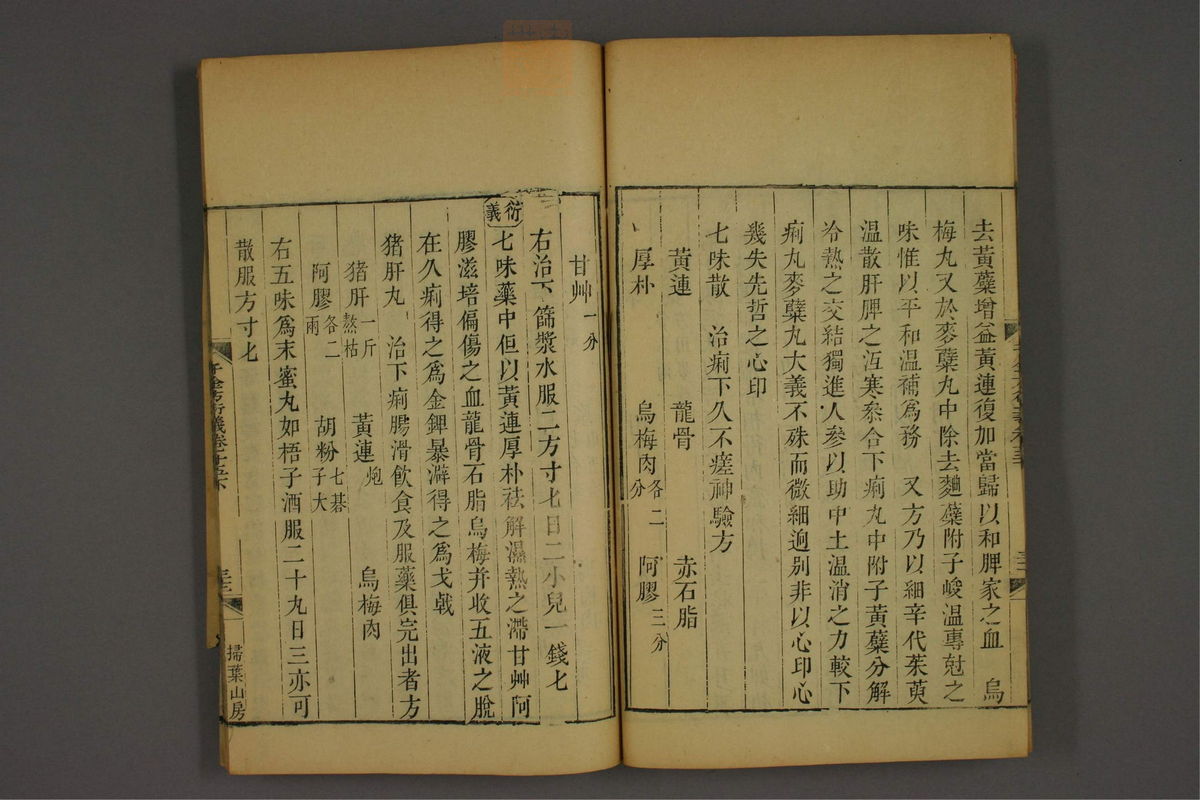 去黃蘗增益黃連復加當歸以和脾家之血　烏
梅丸又於麥蘗丸中除去麯蘗附子峻溫專尅之
味惟以平和溫補為務　又方乃以細辛代茱萸
溫散肝脾之冱寒叅合下痢丸中附子黃蘗分解
冷熱之交結獨進人參以助中土溫消之力較下
痢丸麥蘗丸大義不殊而微細逈別非以心印心
幾失先哲之心印
七味散　治痢下久不瘥神驗方
黃連　龍骨　赤石脂
厚朴　烏梅肉各二分　阿膠三分
甘艸一分
右治下篩漿水服二方寸匕日二小兒一錢匕
衍義
七味藥中但以黃連厚朴祛解濕熱之滯甘艸阿
膠滋培偏傷之血龍骨石脂烏梅并收五液之脫
在久痢得之為金鎞暴澼得之為戈戟
猪肝丸　治下痢腸滑飲食及服藥俱完出者方
猪肝一斤熬枯　黃連炮　烏梅肉
阿膠各二兩　胡粉七碁子大
右五味為末蜜丸如梧子酒服二十九日三亦可
散服方寸匕
千金方衍義卷十五下
掃葉山房